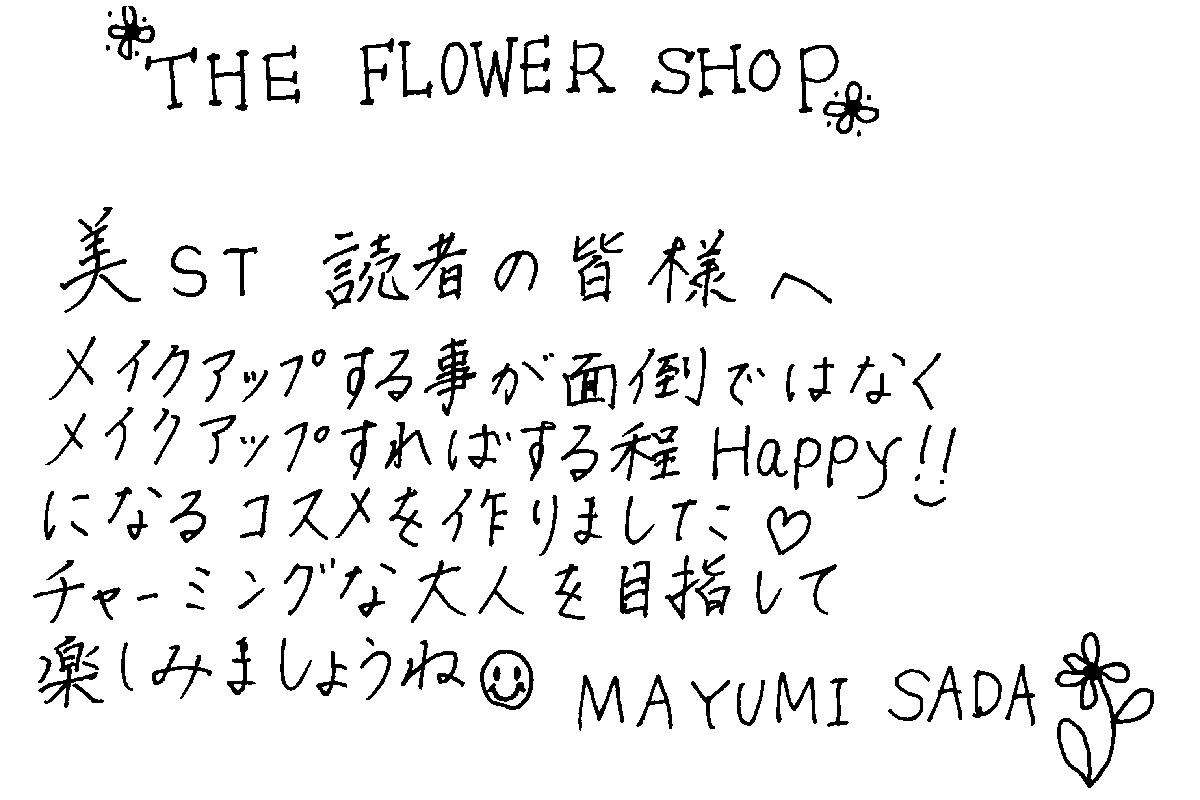 THE FLOWER SHOP
美ST 読者の皆様へ
メイクアップする事が面倒ではなく
メイクアップすればする程 Happy!!
になるコスメを作りました♡
チャーミングな大人を目指して
楽しみましょうね
MAYUMI SADA